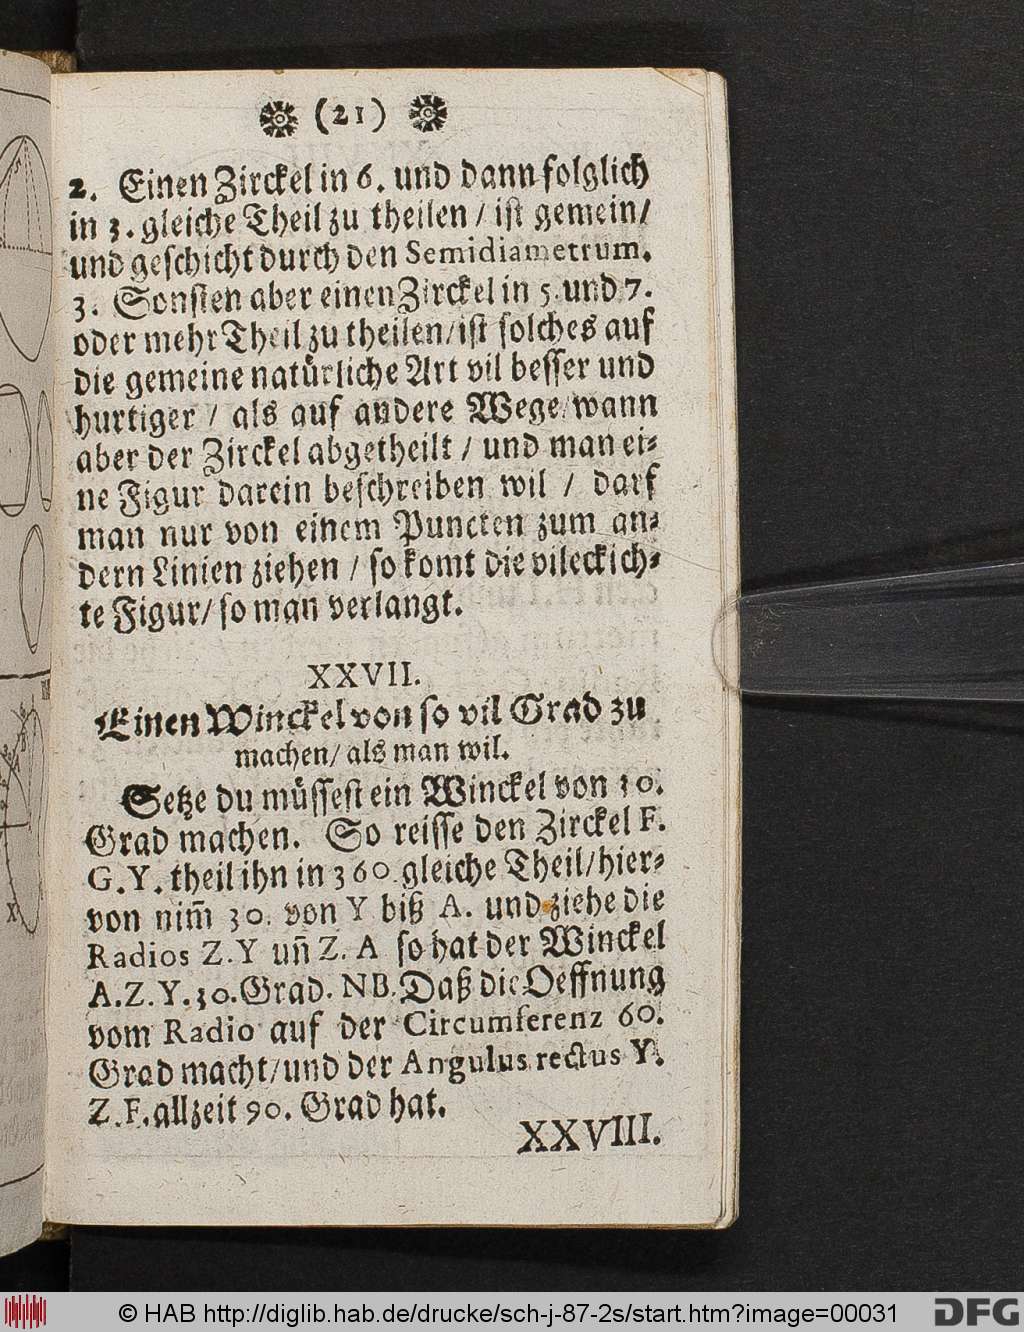 (21)
2. Einen Zirckel in 6. und dann folglich
in 3. gleiche Theil zu theilen / ist gemein /
und geschicht durch den Semidiametrum.
3. Sonsten aber einen Zirckel in 5. und 7.
oder mehr Theil zu theilen / ist solches auf
die gemeine natürliche Art vil besser und
hurtiger / als auf andere Wege / wann
aber der Zirckel abgetheilt / und man ei-
ne Figur darein beschreiben wil / darf
man nur von einem Puncten zum an-
dern Linien ziehen / so komt die vileckich-
te Figur / so man verlangt.
XXVII.
Einen Winckel von so vil Grad zu
machen / als man wil.
Setze du müssest ein Winckel von 30.
Grad machen. So reisse den Zirckel F.
G. Y. theil ihn in 360 gleiche Theil / hier-
von nim̃ 30. von Y biß A. und ziehe die
Radios Z. Y uñ Z. A so hat der Winckel
A. Z. Y. 30. Grad. NB. Daß die Oeffnung
vom Radio auf der Circumferenz 60.
Grad macht / und der Angulus rectus Y.
Z. F. allzeit 90. Grad hat.
XXVIII.
X
© HAB http://diglib.hab.de/drucke/sch-j-87-2s/start.htm?image=00031
DFG